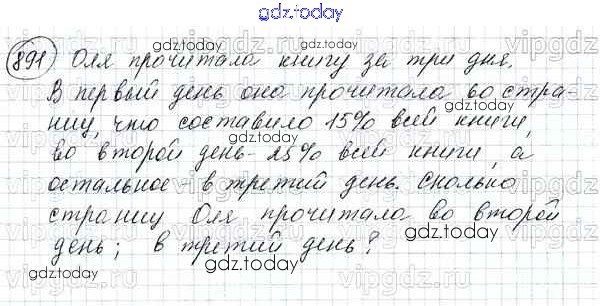 gdz.today
891 Оля прочитала книгу за три дня.
gdz.today gdz.today
В первый день она прочитала 60 стра-
gdz.today gdz.today
ниц, что составило 15% всей книги,
gdz.today
во второй день - 25% всей книги, а
gdz.today gdz.today
остальное - в третий день. Сколько
gdz.today
страниц Оля прочитала во второй
gdz.today gdz.today
день; в третий день?
gdz.today gdz.today
vipgdz